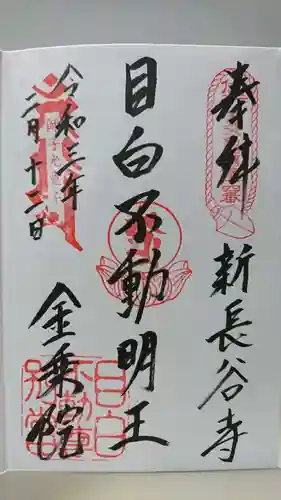 奉拝
新長谷寺
目白不動明王
令和三年
二月十二日
金乗院